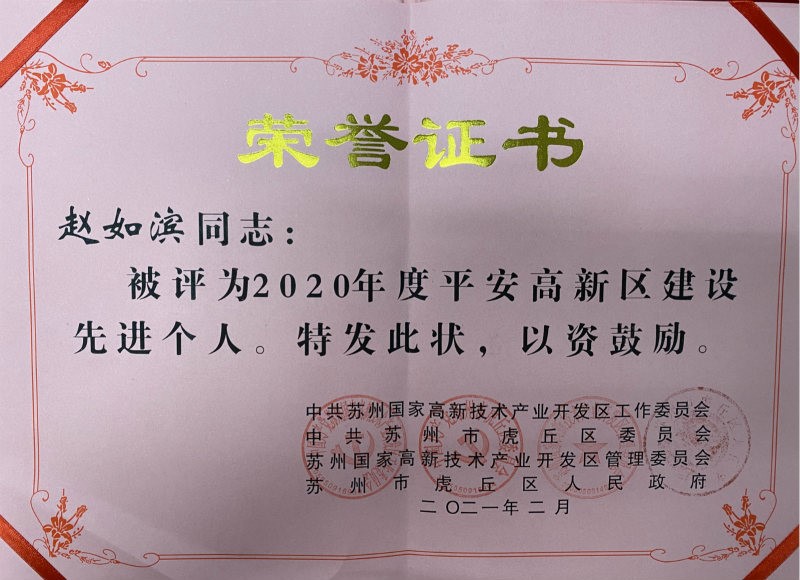 荣誉证书
赵如滨同志：
被评为2020年度平安高新区建设
先进个人。特发此状，以资鼓励。
中共苏州国家高新技术产业开发区工作委员会
中共苏州市虎丘区委员会
苏州国家高新技术产业开发区管理委员会
苏州市虎丘区人民政府
二〇二一年二月